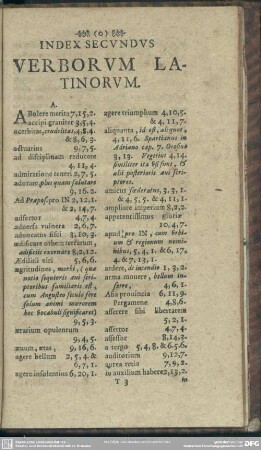 (o)
INDEX SECVNDVS
VERBORVM LA-
TINORVM.
A.
ABolere merita 7,15,2.
accipi graviter 3,5,4.
acerbitas, crudelitas, 4,8,4.
& 8,6,3.
actuarius 9,7,5.
ad disciplinam reducere
4,11,4.
admiratione teneri 2,7,5.
adorare plus quam salutare
9,16,2.
Ad Prapos. pro IN 2,12,1.
& 2,14,7.
adsertor 4,7,4.
adversa vulnera 2,6,7.
advocatus fisci 3,10,3.
ædificare othem
ædificiis exornare 8,2,12.
Ædilitii viri 5,6,6.
ægritudines, morbi, (qua
notio sequioris avi scri-
ptoribus familiaris est,
cum Augusteo seculo fere
solum animi mœrorem
hoc vocabulū significaret)
9,5,3.
ærarium opulentum
9,4,5.
ævum, ætas, 9,16,6.
agere bellum 2,5,4, &
6,7,1.
agere insolentius 6,20,1.
agere triumphum 4,10,5.
& 4,11,7.
aliquanta, id est, aliquot,
4,11,6. Spartianus in
Adriano cap. 7. Orosius
3, 13. Vegetius 4,14.
similiter ita usi sunt, &
alii posterioris avi scri-
ptores.
amicus fœderatus, 3,3,1.
& 4,5,5. & 4,11,1.
ampliare imperium 8,2,2.
appetentissimus gloriæ
10,4,7.
apud, pro IN, cum urbium
& regionum nomi-
nibus, 5,4,1. & 6,17,
4. & 7,13,1.
ardere, de incendio 1,3,2.
arma movere, bellum in-
ferre, 4,6,1.
Asia provincia 6,11,9.
Pergamene 4,8,6.
asserere sibi libertatem
5,2,1.
assertor 4,7,4.
assessor 8,14,2.
a tergo 5,4,8. & 6,5,6.
auditorium 9,12,7.
aurea recta 7,9,2.
in auxilium habere 2,13,2.
T 3 in